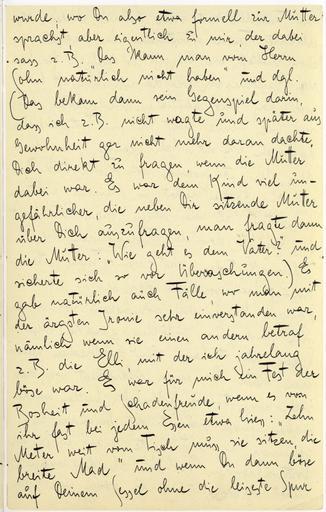 wurde, wo Du also etwa formell zur Mutter
sprachst aber eigentlich zu mir, der dabei
sass z.B. „Das kann man vom Herrn
Sohn natürlich nicht haben" und dgl.
(Das bekam dann sein Gegenspiel darin,
dass ich z.B. nicht wagte und später aus
Gewohnheit gar nicht mehr daran dachte,
Dich direkt zu fragen, wenn die Mutter
dabei war. Es war dem Kind viel un-
gefährlicher, die neben Dir sitzende Mutter
über Dich auszufragen, man fragte dann
die Mutter: „Wie geht es dem Vater?" und
sicherte sich so vor Überraschungen) Es
gab natürlich auch Fälle, wo man mit
der ärgsten Ironie sehr einverstanden war,
nämlich wenn sie einen andern betraf
z.B. die Elli, mit der ich jahrelang
böse war. Es war für mich ein Fest der
Bosheit und Schadenfreude, wenn es von
ihr fast bei jedem Essen etwa hiess: „Zehn
Meter weit vom Tisch muss sie sitzen die
breite Mad" und wenn Du dann böse
auf Deinem Sessel ohne die leiseste Spur